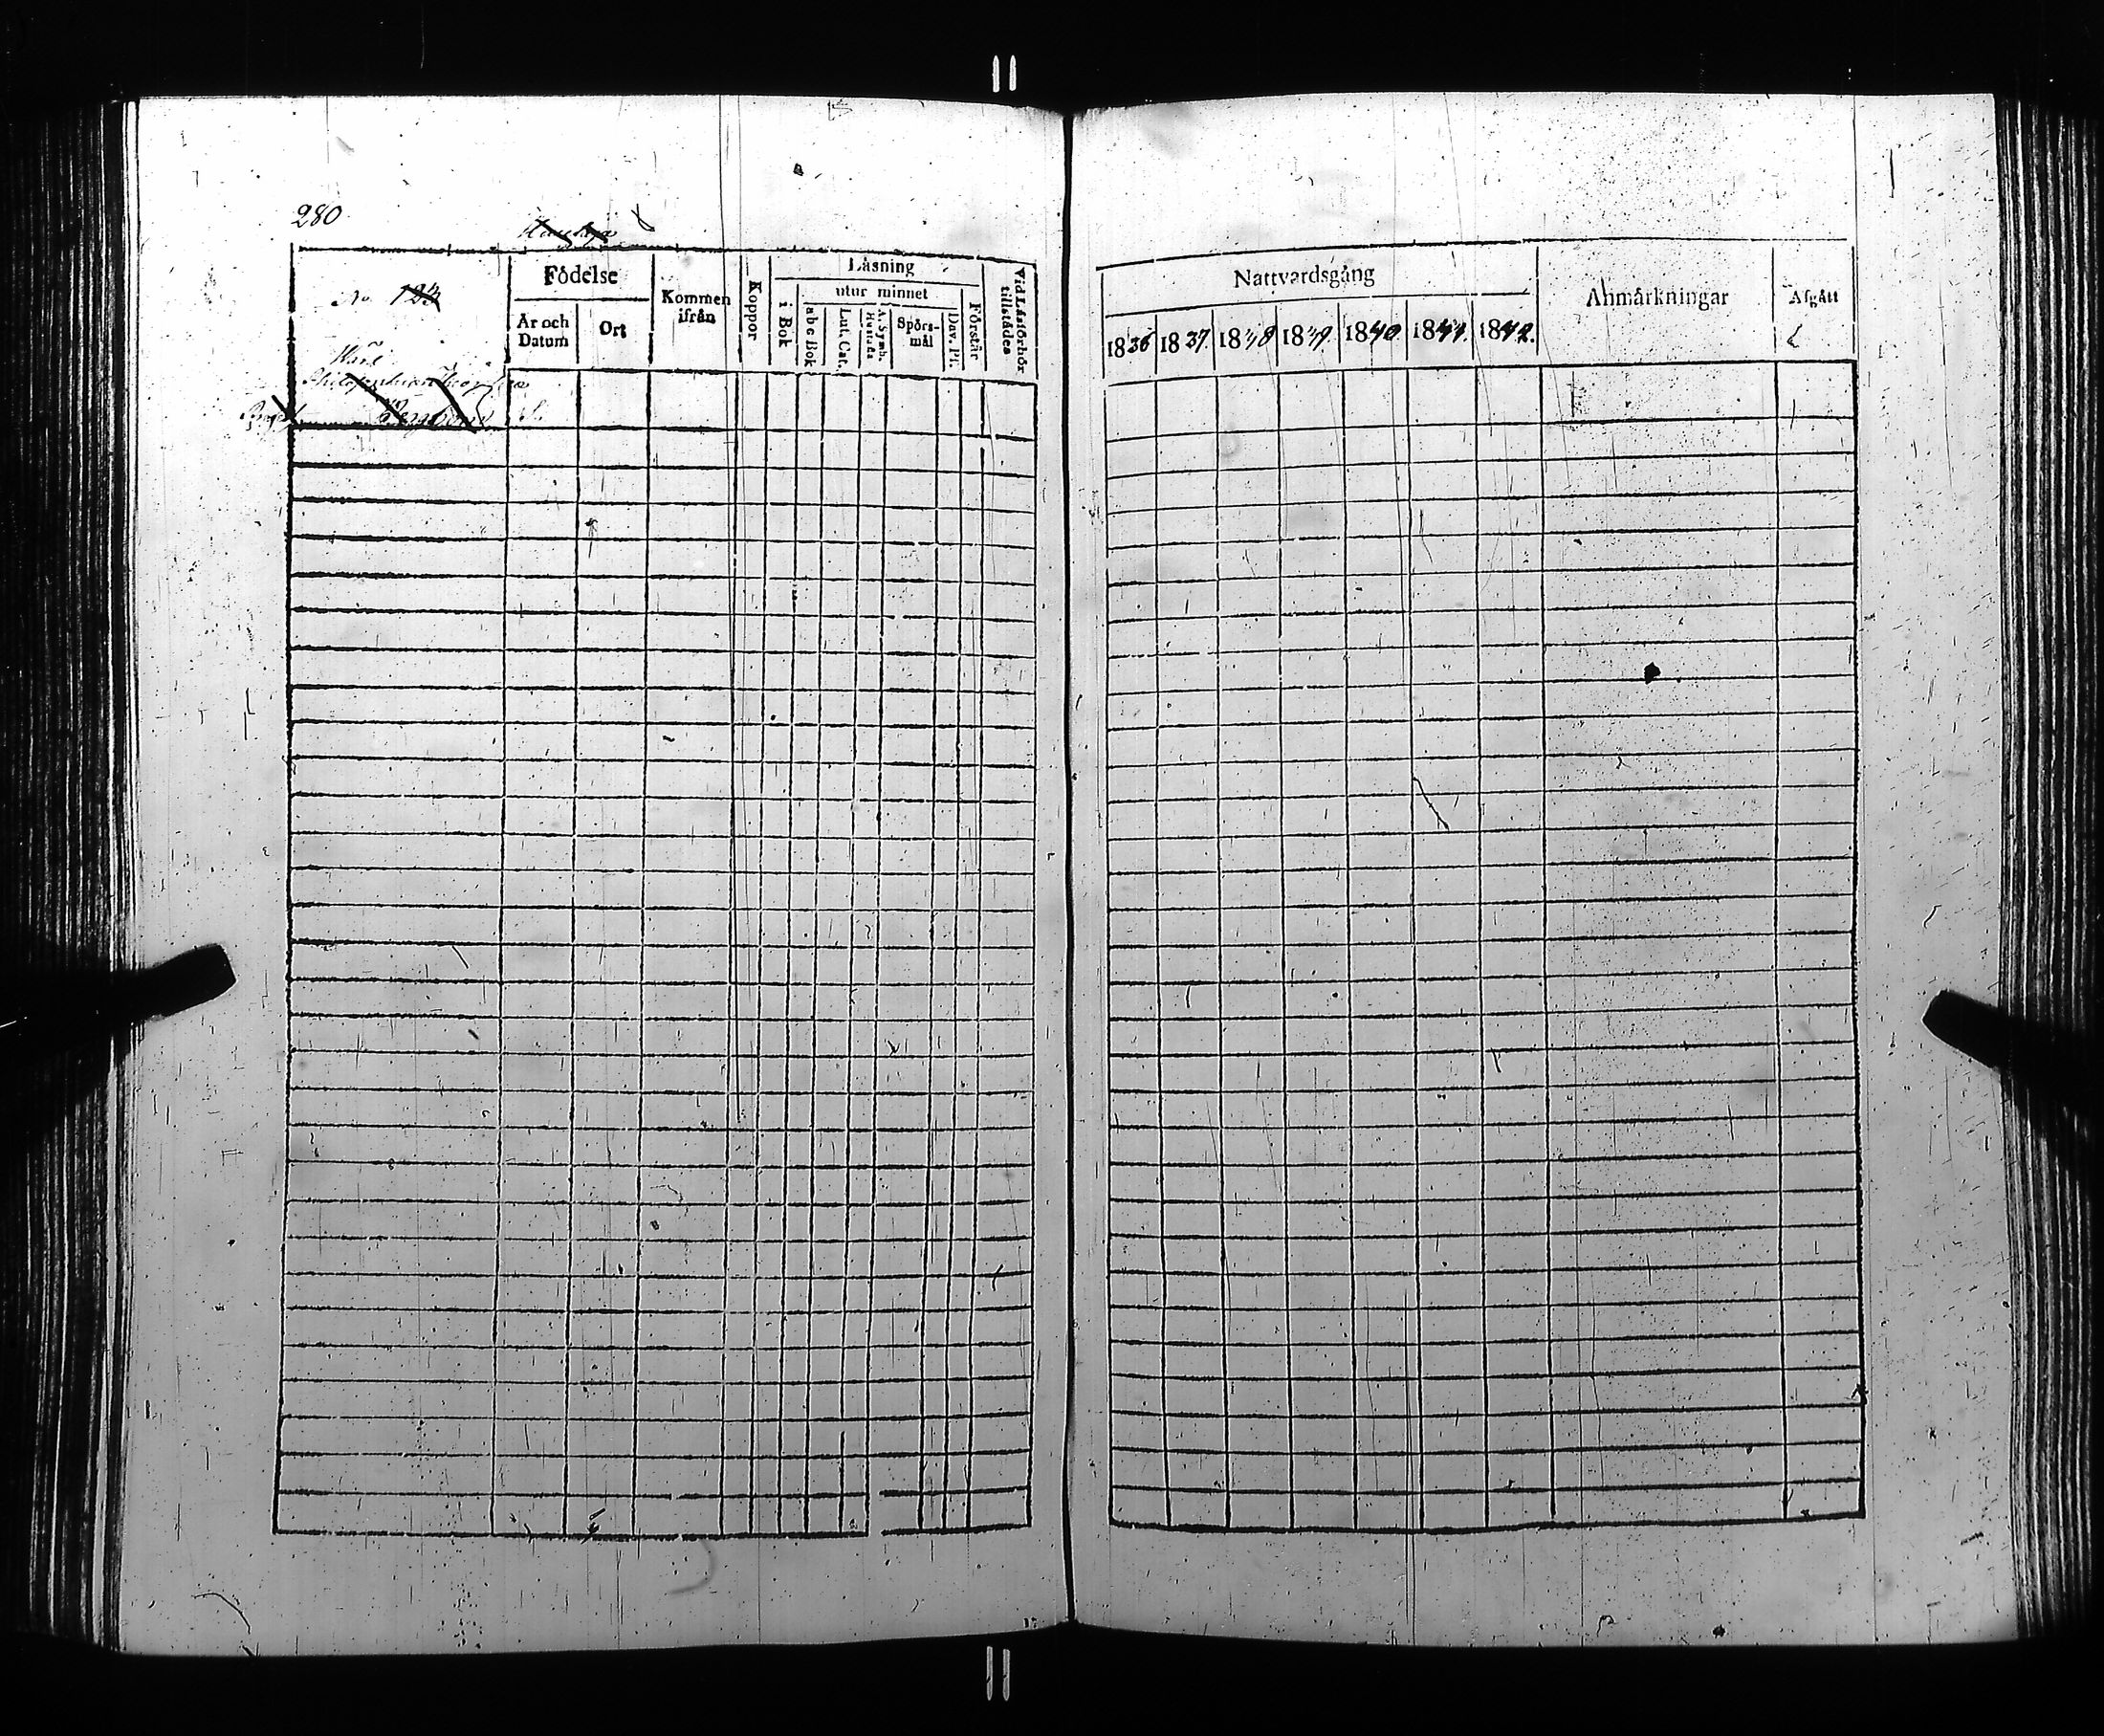 280
No. 124
Födelse
Kommen ifrån
Koppor
Läsning
Vid Läsförhör tillstädes
År och Datum
Ort
i Bok
utur minnet
Förstår
abc Bok
Lut. Cat.
A. Symb. Hustafla
Spörsmål
Dav. Ps.
Nattvardsgång
Anmärkningar
Afgått
1836 1837. 1838 1839. 1840. 1841. 1842.